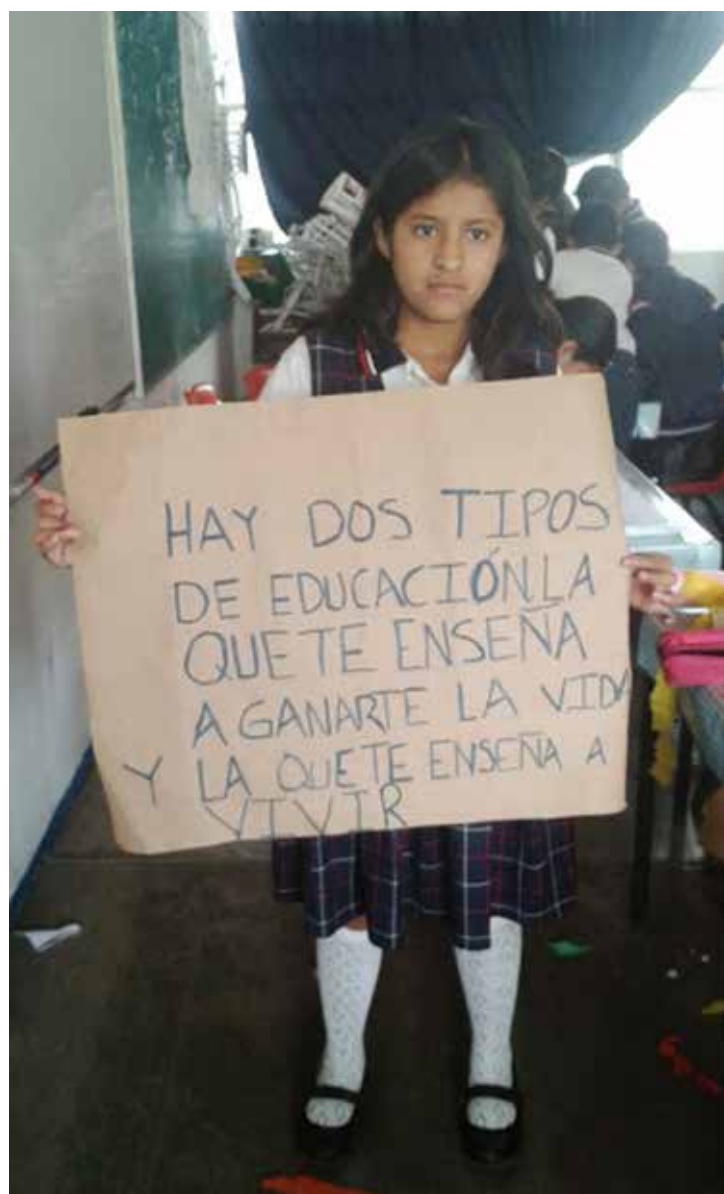 HAY DOS TIPOS
DE EDUCACIÓN.LA
QUE TE ENSEÑA
A GANARTE LA VIDA
Y LA QUE TE ENSEÑA A
VIVIR